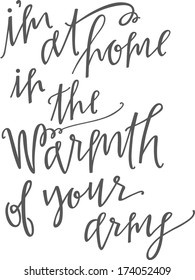 i'm
at home
in
the
warmth
of your
arms
www.shutterstock.com · 174052409